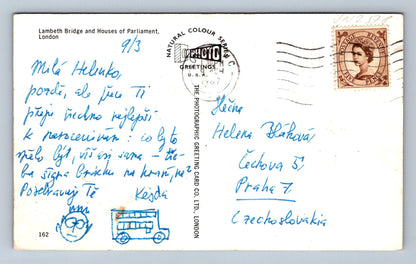 Lambeth Bridge and Houses of Parliament,
London
9/3
Milá Helenko,
pozdě, ale přece Ti
přeju všechno nejlepší
k narozeninám: co by to
mělo být, víš asi sama —
Pozdravuj Tě
Kejda
162
NATURAL COLOUR SERIES
PHOTO
GREETINGS
THE PHOTOGRAPHIC GREETING CARD CO. LTD., LONDON
Slečna
Helena Bláhová
Čechova 5,
Praha 7.
Czechoslovakia